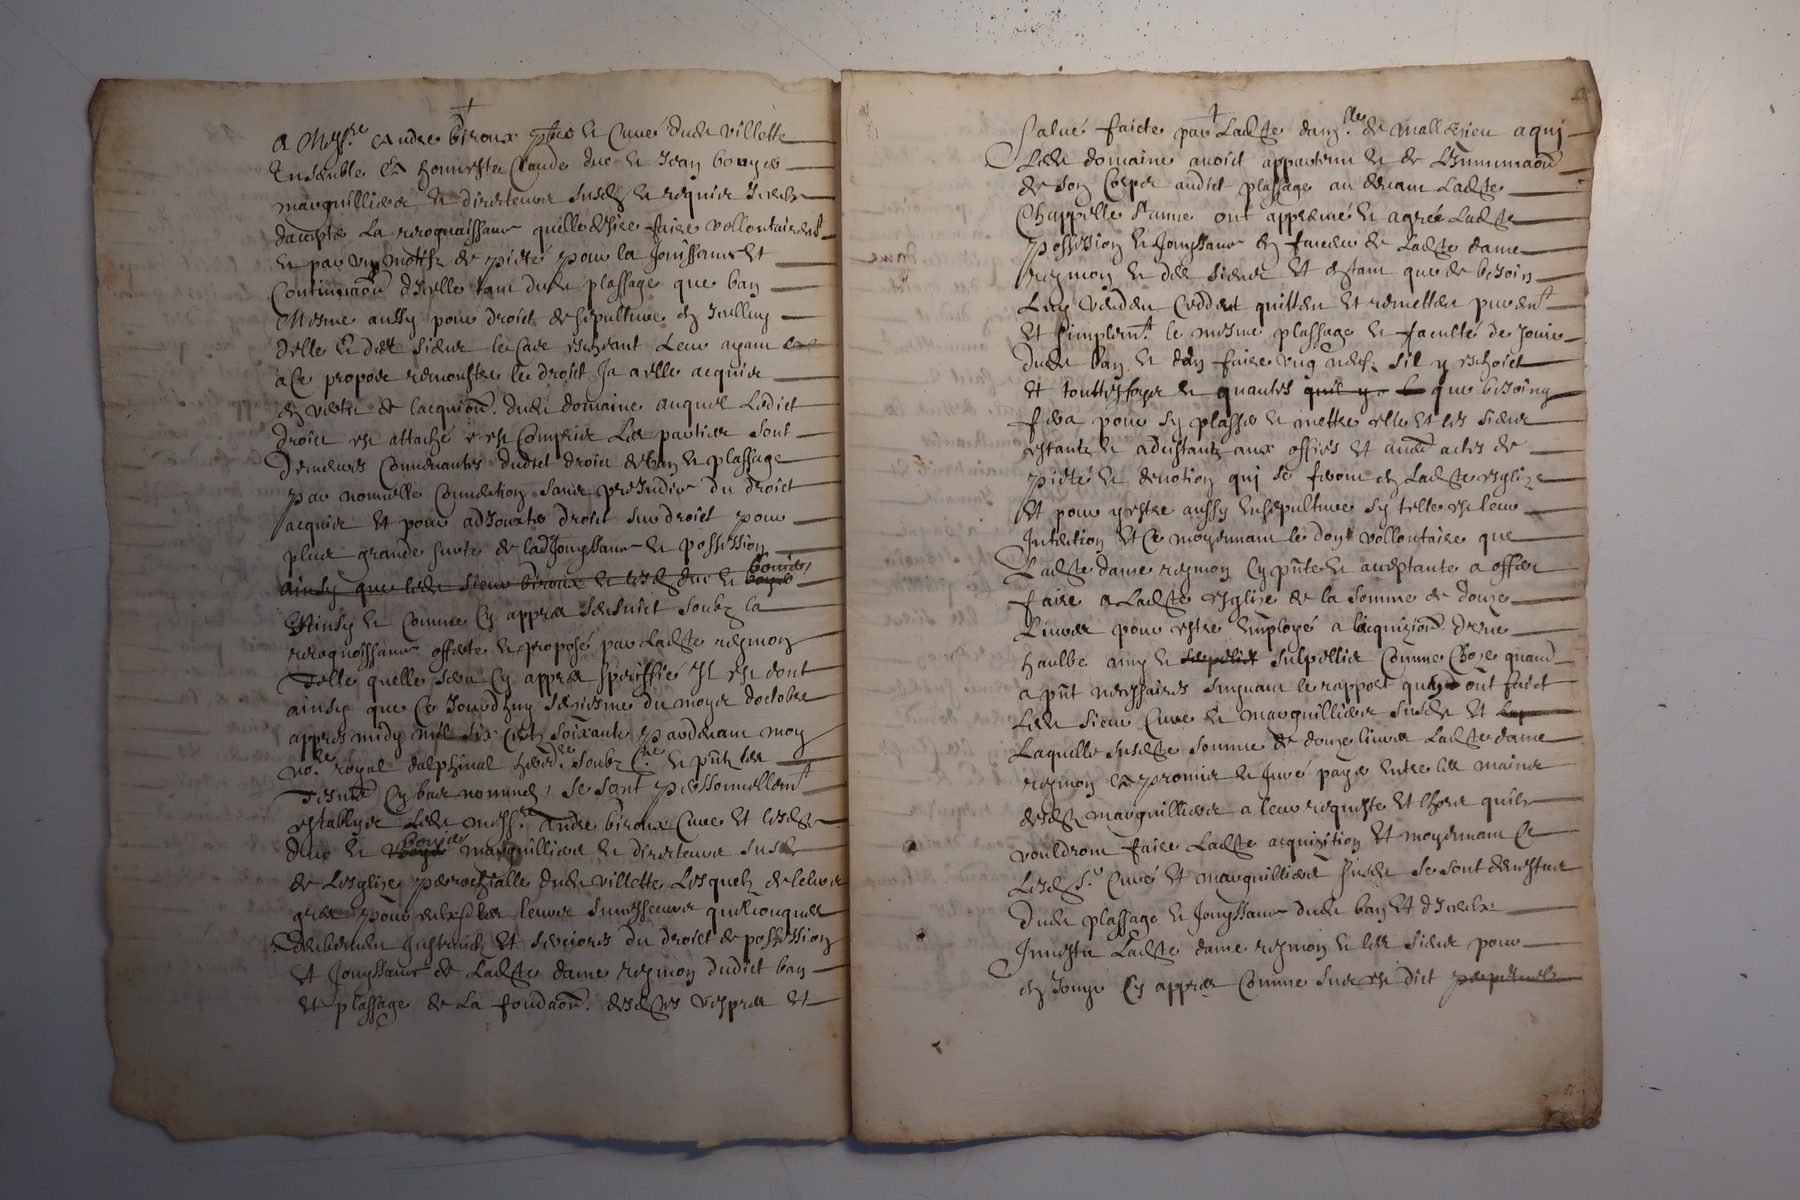 A Mess.re Andre biroux pbre et Curé dudt villette
Ensemble a honneste Claude duc et Jean bouyer
marguilliers et directeurs susd et requis Iceux
daccepter La recognoissance quelle desire faire vollontairemt
et par ung motif de pieté pour la Jouissance et
Continuaon dIcelle tant dudt plassage que ban
Mesme aussy pour droict de sepulture en Icelluy
delle et des sieurs le Cas escheant Leur ayant
a Ce propos remonstre le droict Ja a elle acquis
en vertu de lacquion. dudt domaine auquel Ledict
droict est attaché et est Compris Les parties sont
demeures Convenantes dudict droict de ban et plassage
par nouvelle Convention sans preiudice du droict
acquis et pour adiouster droict sur droict pour
plus grande surte de lad Jouyssance et possession
ainsy que ledt sieur biroux et lesd duc et bouyer
Ainsy et Comme Cy appres sensuict soubz la
recognoissance offerte et proposé par Ladte reymon
Telle quelle sera Cy appres speciffié Il est dont
ainsy que Ce Jourdhuy sixiesme du moys doctobre
appres midy mil six Centz soixante pardevant moy
no.re royal dalphinal hered.re soubz.né et pntz les
tesmoins Cy bas nommes, se sont personnellemt
establys Ledt mess.re Andre biroux Curé et lesdts
duc et bouyer marguilliers et directeurs susd
de Lesglize parrochialle dudt villette Lesquelz de leurs
gres pour eux et les leurs successeurs quelconques
deuberment Instruictz et sertiores du droict de possession
et Jouyssance de Ladte dame reymon dudict ban
et plassage de La fondaon. desdtes vespres et
salué faicte par Ladte damlle de mallezieu a qui
Ledt domaine avoict appartenu et de Lhinumaon
de son Corps audict plassage au devant Ladte
Chappelle st anne ont appreuvé et agreé Ladte
possession et Jouyssance en faveur de Ladte dame
reymon et des sieurs Et en tant que de besoin
Luy vendent Ceddent quittent et remettent purent
Et simplemt le mesme plassage et faculté de Jouir
dudt ban et den faire ung neuf sil y eschoict
Et touttesfoys et quantes quil y a que besoing
sera pour sy plasser et mettre elle et les sieurs
estantz et adcistantz aux offices et autres actes de
pieté et devotion qui se feront en Ladte esglize
Et pour y estre aussy Ensepulture sy telle est leur
Intention et Ce moyennant le don vollontaire que
Ladte dame reymon Cy pnte et acceptante a offert
faire a Ladte esglize de la somme de douze
Livres pour estre Employé a lacquizion dune
haulbe amy et surpellis Comme Chose quand
a pnt necessaires suyvant le rapport quen ont faict
Ledt sieur Curé et marguilliers susd Et
Laquelle susdte somme de douze livres Ladte dame
reymon a promis et Juré payer entre les mains
desdts marguilliers a leur requeste Et Lhors quilz
vouldront faire Ladte acquizition Et moyennant Ce
Lesd s.r Curé et marguilliers susd se sont desvestus
dudt plassage et Jouyssance dudt ban Et dIceux
Investu Ladte dame reymon et les sieurs pour
en Jouyr Cy appres Comme sus est dict perpetuelt